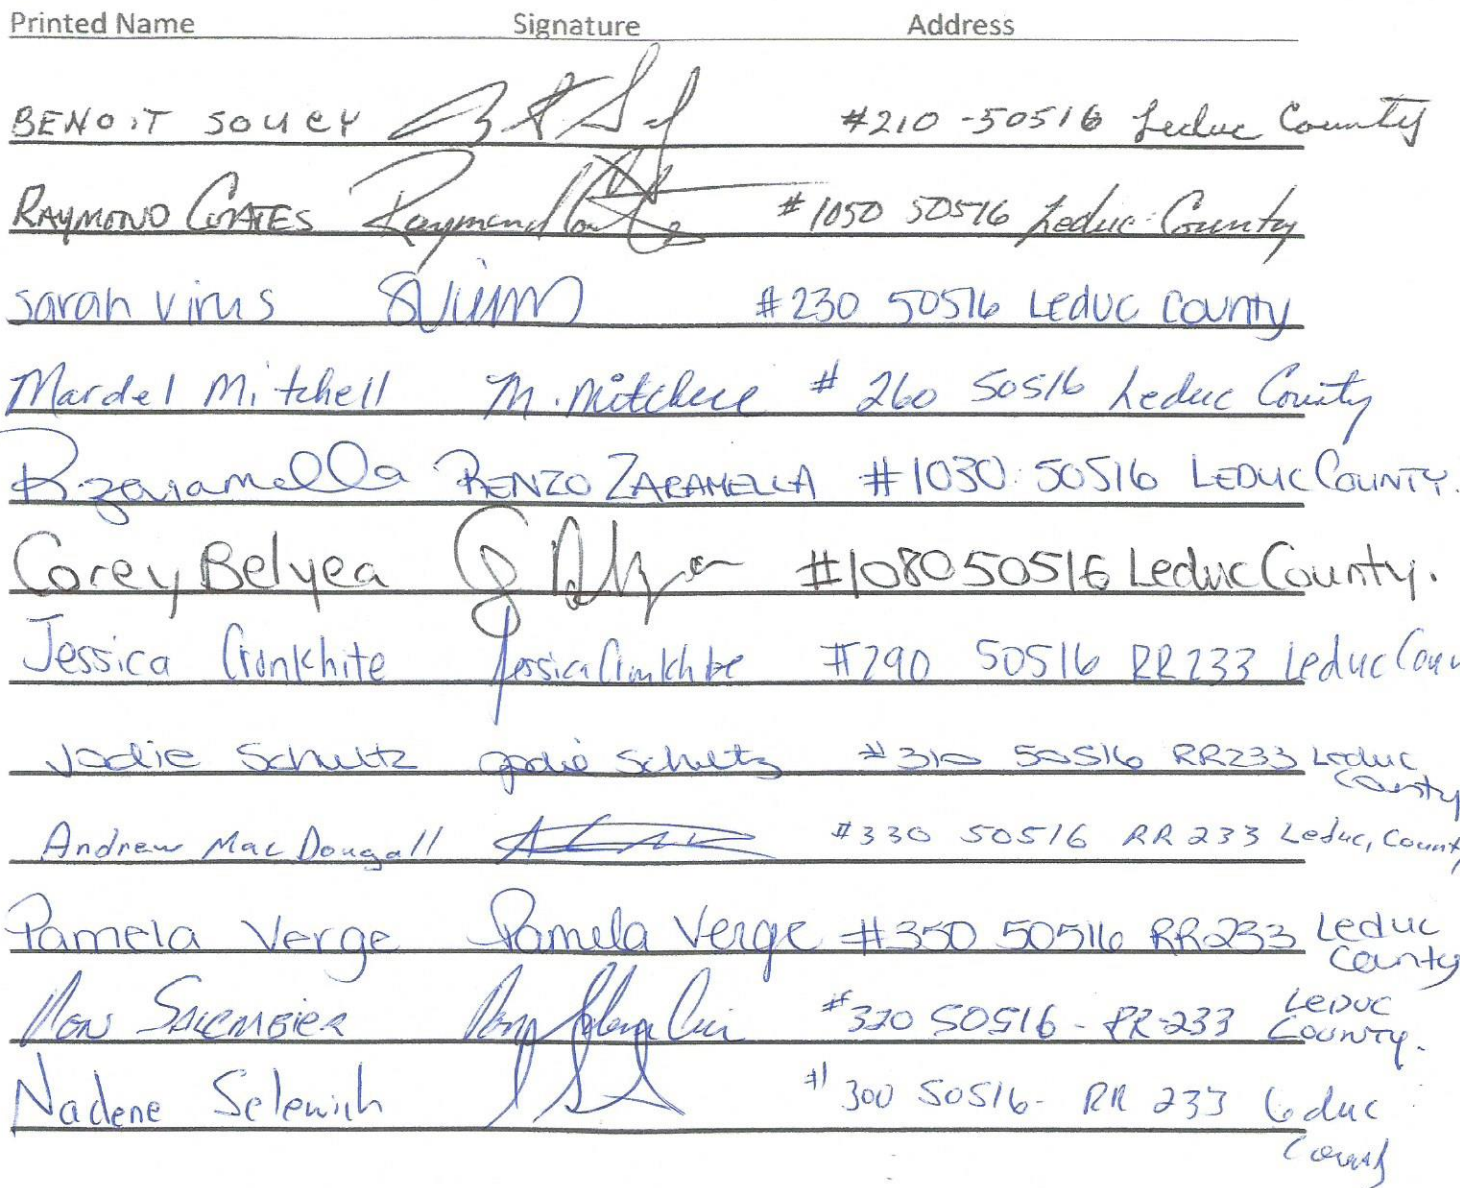 Printed Name Signature Address
BENOIT SOUCY #210 -50516 Leduc County
RAYMOND COATES Raymond Coates #1050 50516 Leduc County
Sarah Virus SVirus #230 50516 Leduc County
Mardel Mitchell M. Mitchell # 260 50516 Leduc County
R Zaramella RENZO ZARAMELLA #1030 50516 LEDUC COUNTY.
Corey Belyea #1080 50516 Leduc County.
Jessica Cronkhite Jessica Cronkhite #290 50516 RR233 Leduc Coun
Jodie Schultz Jodie Schultz #310 50516 RR233 Leduc
County
Andrew MacDougall #330 50516 RR 233 Leduc, County
Pamela Verge Pamela Verge #350 50516 RR233 Leduc
County
Ron #320 50516 - RR-233 LEDUC
COUNTY.
Nadene #300 50516- RR 233 Leduc
County